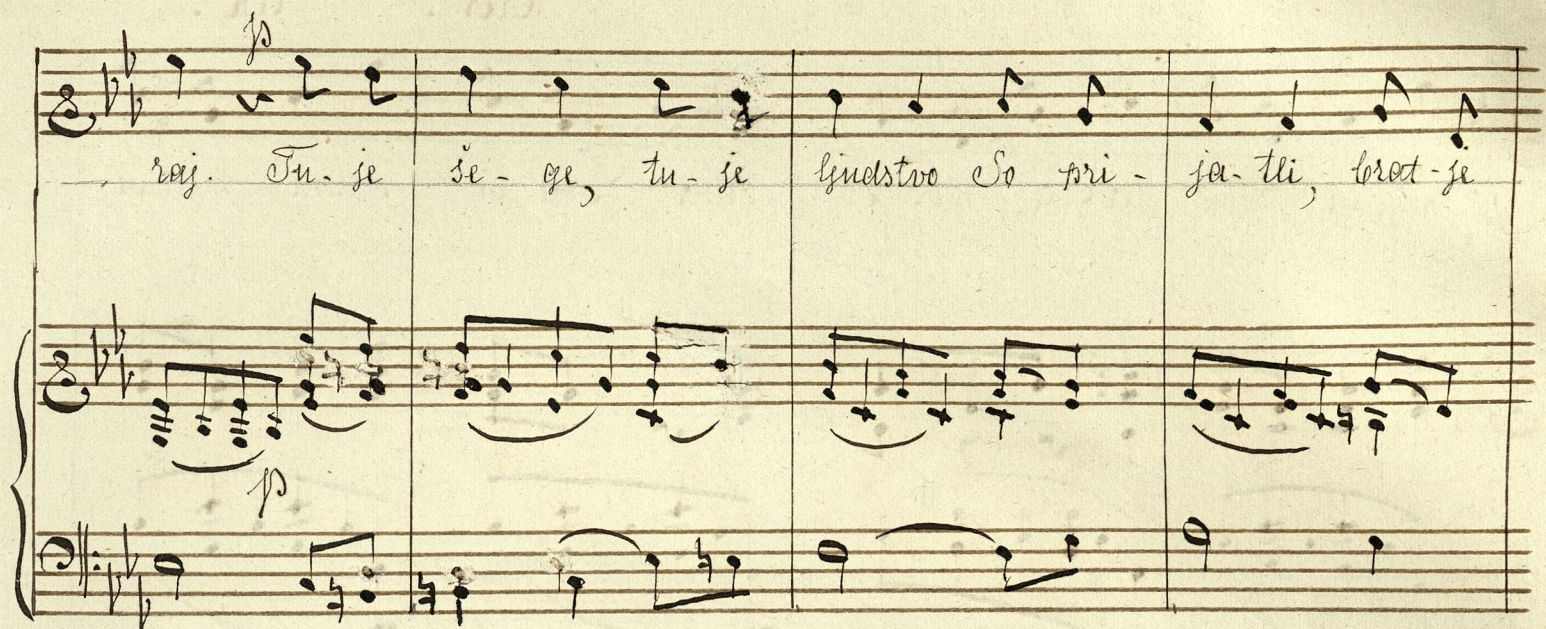 p
raj. Tu- je še - ge, tu - je ljudstvo So pri - ja - tli, brat - je
p